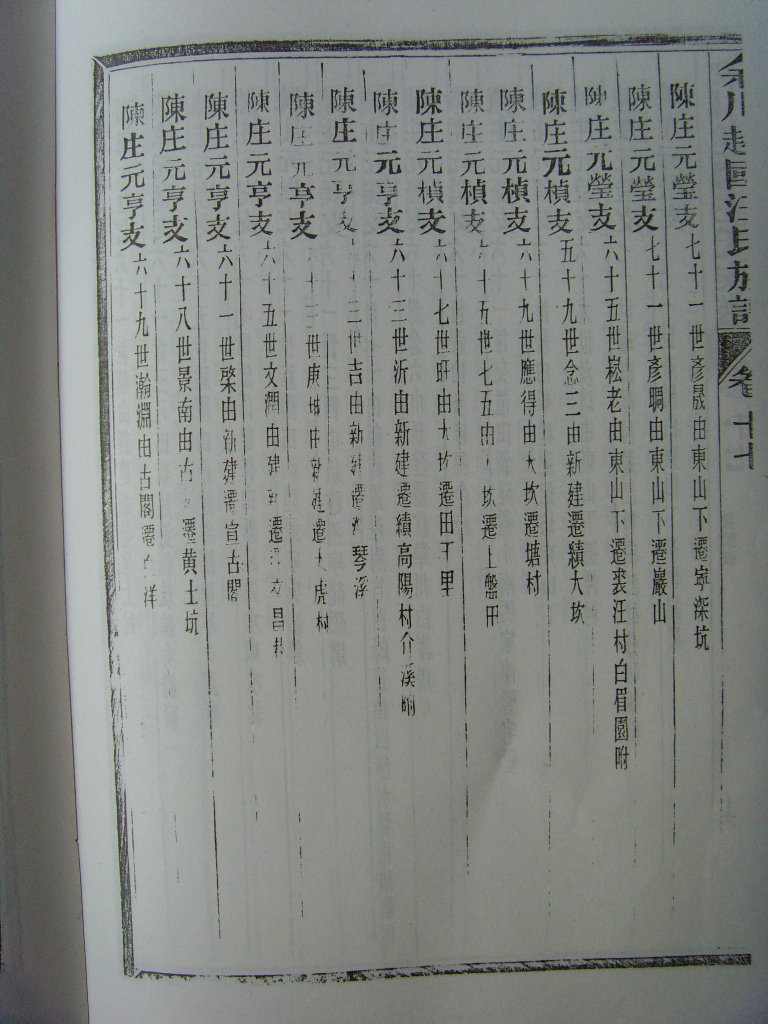 余川越國汪氏族譜 卷十七
陳庄元瑩支七十一世彥晟由東山下遷寧深坑
陳庄元瑩支七十一世彥晭由東山下遷巖山
陳庄元瑩支六十五世崧老由東山下遷裘汪村白眉園附
陳庄元楨支五十九世念三由新建遷績大坎
陳庄元楨支六十九世應得由大坎遷塘村
陳庄元楨支六十五世七五由大坎遷上盤田
陳庄元楨支六十七世旺由大坎遷田干里
陳庄元亨支六十三世沂由新建遷績高陽村介溪
陳庄元亨支 世吉由新建遷 琴溪
陳庄元亨支六十三世庚 由新建遷大虎
陳庄元亨支六十五世文潤由建 遷 昌
陳庄元亨支六十一世棨由新建遷宣古閣
陳庄元亨支六十八世景南由古 遷黄土坑
陳庄元亨支六十九世瀚淵由古閣遷 洋